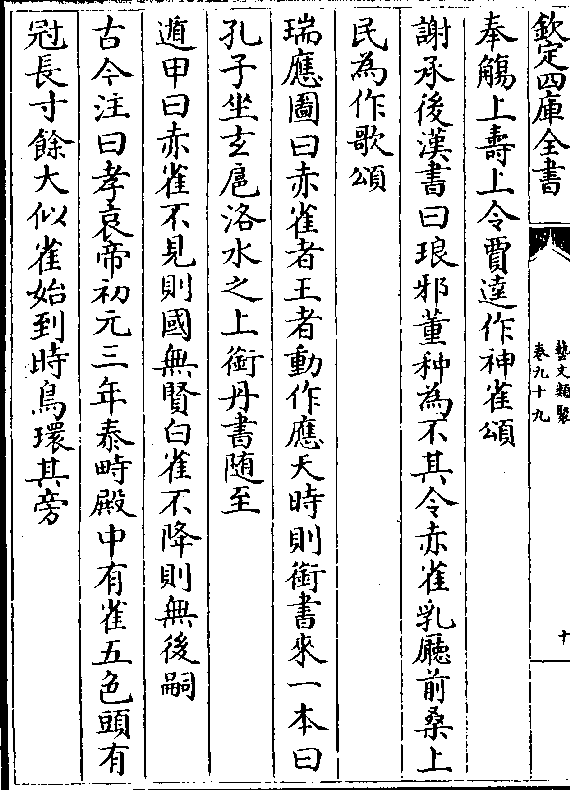 欽定四庫全書
藝文類聚
卷九十九
十
奉觴上壽上令賈逵作神雀頌
謝承後漢書曰琅邪董种為不其令赤雀乳廳前桑上
民為作歌頌
瑞應圖曰赤雀者王者動作應天時則銜書來一本曰
孔子坐玄扈洛水之上銜丹書随至
遁甲曰赤雀不見則國無賢白雀不降則無後嗣
古今注曰孝哀帝初元三年泰畤殿中有雀五色頭有
冠長寸餘大似雀始到時鳥環其旁